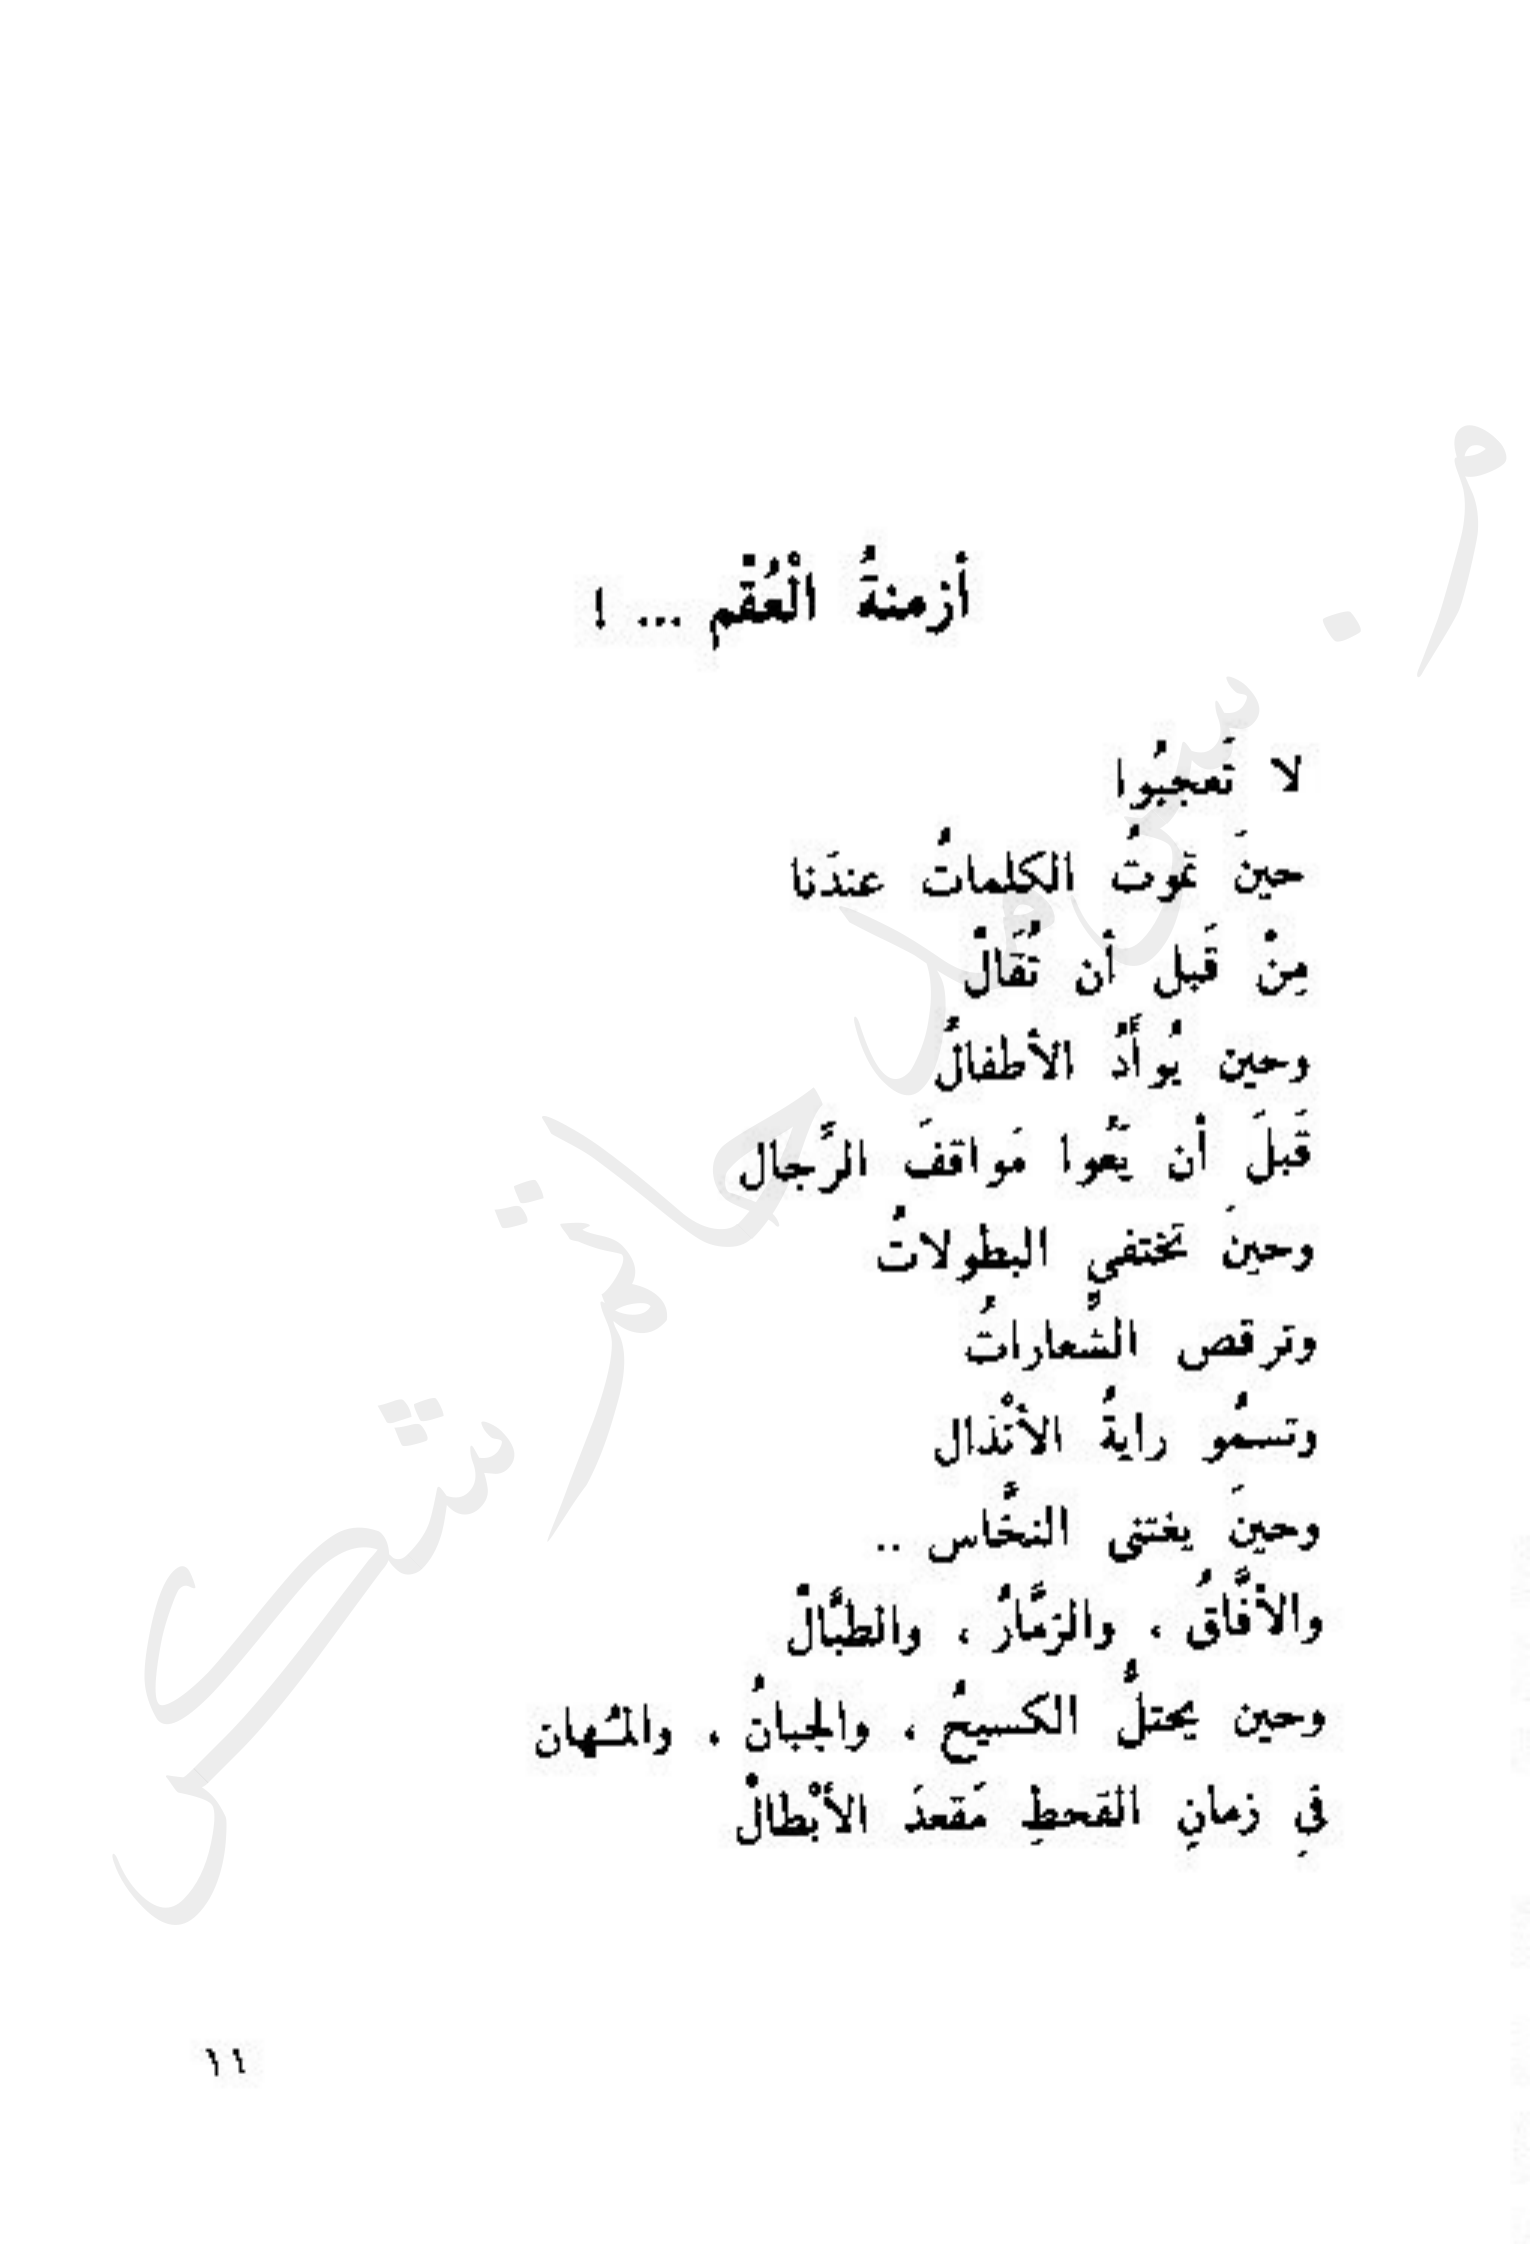 أزمنةُ الْعُقْم ... !
لا تَعجبُوا
حينَ تموتُ الكلماتُ عندَنا
مِنْ قَبل أن تُقَالْ
وحين يُوأَدُ الأطفالُ
قَبلَ أن يَعُوا مَواقفَ الرَّجال
وحينَ تختفي البطولاتُ
وترقص الشِّعاراتُ
وتسمُو رايةُ الأنْذال
وحينَ يغتنى النخَّاس ..
والأفَّاقُ ، والزمَّارُ ، والطبَّالْ
وحين يحتلُّ الكسيحُ ، والجبانُ ، والمُـهان
في زمانِ القحطِ مَقعدَ الأبْطالْ
١١